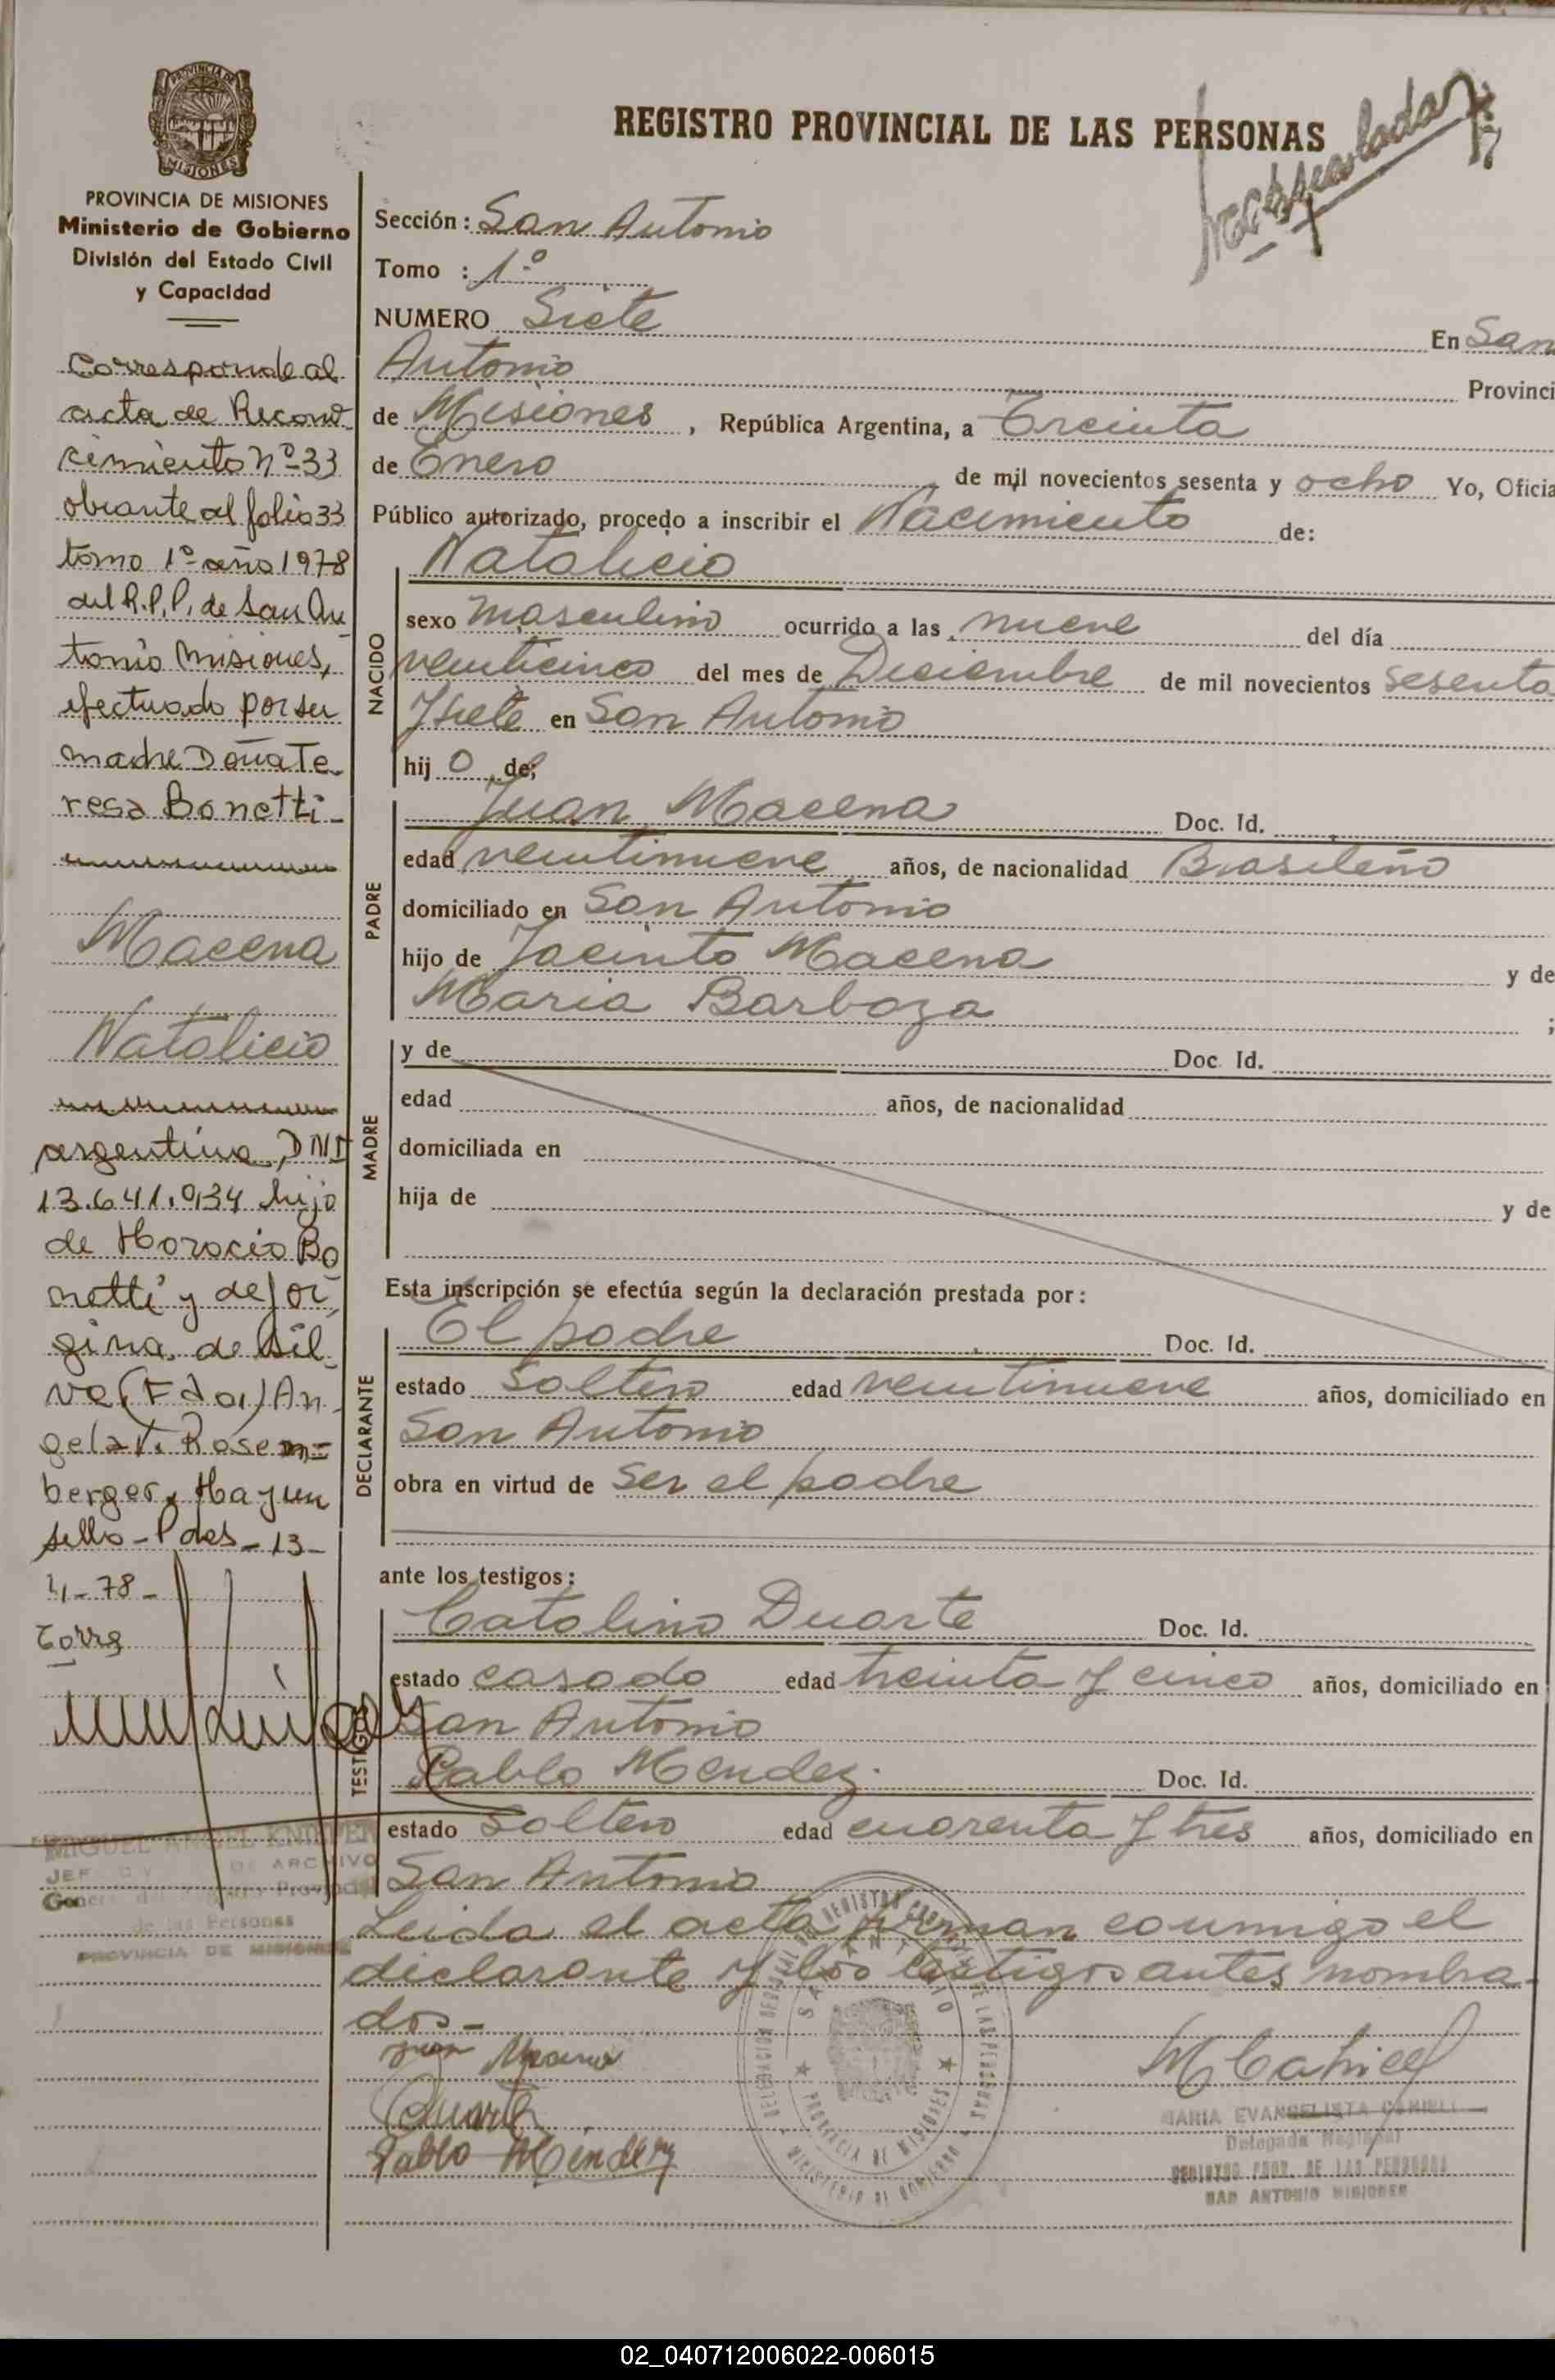 PROVINCIA DE MISIONES
PROVINCIA DE MISIONES
Ministerio de Gobierno
División del Estado Civil
y Capacidad
Corresponde al
acta de Recono
cimiento nº 33
obrante al folio 33
tomo 1º año 1978
del R.P.P. de San An
tonio Misiones,
efectuado por su
madre Doña Te
resa Bonetti-
Macena
Natalicio
argentina, DNI
13.641.934 hijo
de Horacio Bo
netti y de Jor
gina de Sil
va (Fdo.) An
gela T. Rosem=
berger. Hay un
sello - Pdas - 13 -
4 - 78 -
MIGUEL ANGEL
JEF DE ARCHIVO
de las Personas
PROVINCIA DE MISIONES
REGISTRO PROVINCIAL DE LAS PERSONAS
Sección: San Antonio
Tomo : 1º
NUMERO Siete En San
Antonio Provinci
de Misiones, República Argentina, a Treinta
de Enero de mil novecientos sesenta y ocho Yo, Oficia
Público autorizado, procedo a inscribir el Nacimiento de:
NACIDO
Natalicio
sexo masculino ocurrido a las nueve del día
veinticinco del mes de Diciembre de mil novecientos sesenta
y siete en San Antonio
hij o de:
PADRE
Juan Macena Doc. Id.
edad veintinueve años, de nacionalidad Brasileño
domiciliado en San Antonio
hijo de Jacinto Macena y de
Maria Barboza ;
MADRE
y de Doc. Id.
edad años, de nacionalidad
domiciliada en
hija de y de
Esta inscripción se efectúa según la declaración prestada por:
DECLARANTE
El padre Doc. Id.
estado Soltero edad veintinueve años, domiciliado en
San Antonio
obra en virtud de ser el padre
ante los testigos:
Catalino Duarte Doc. Id.
estado casado edad treinta y cinco años, domiciliado en
San Antonio
Pablo Mendez. Doc. Id.
estado Soltero edad cuarenta y tres años, domiciliado en
San Antonio
Leida el acta firman conmigo el
declarante y los testigos antes nombra-
dos -
Juan Macena
Duarte
Pablo Mendez
MCahiell
MARIA EVANGELISTA
Delegada Regional
REGISTRO PROV. DE LAS PERSONAS
SAN ANTONIO MISIONES
SAN ANTONIO
PROVINCIA DE MISIONES
MINISTERIO DE GOBIERNO
02_040712006022-006015